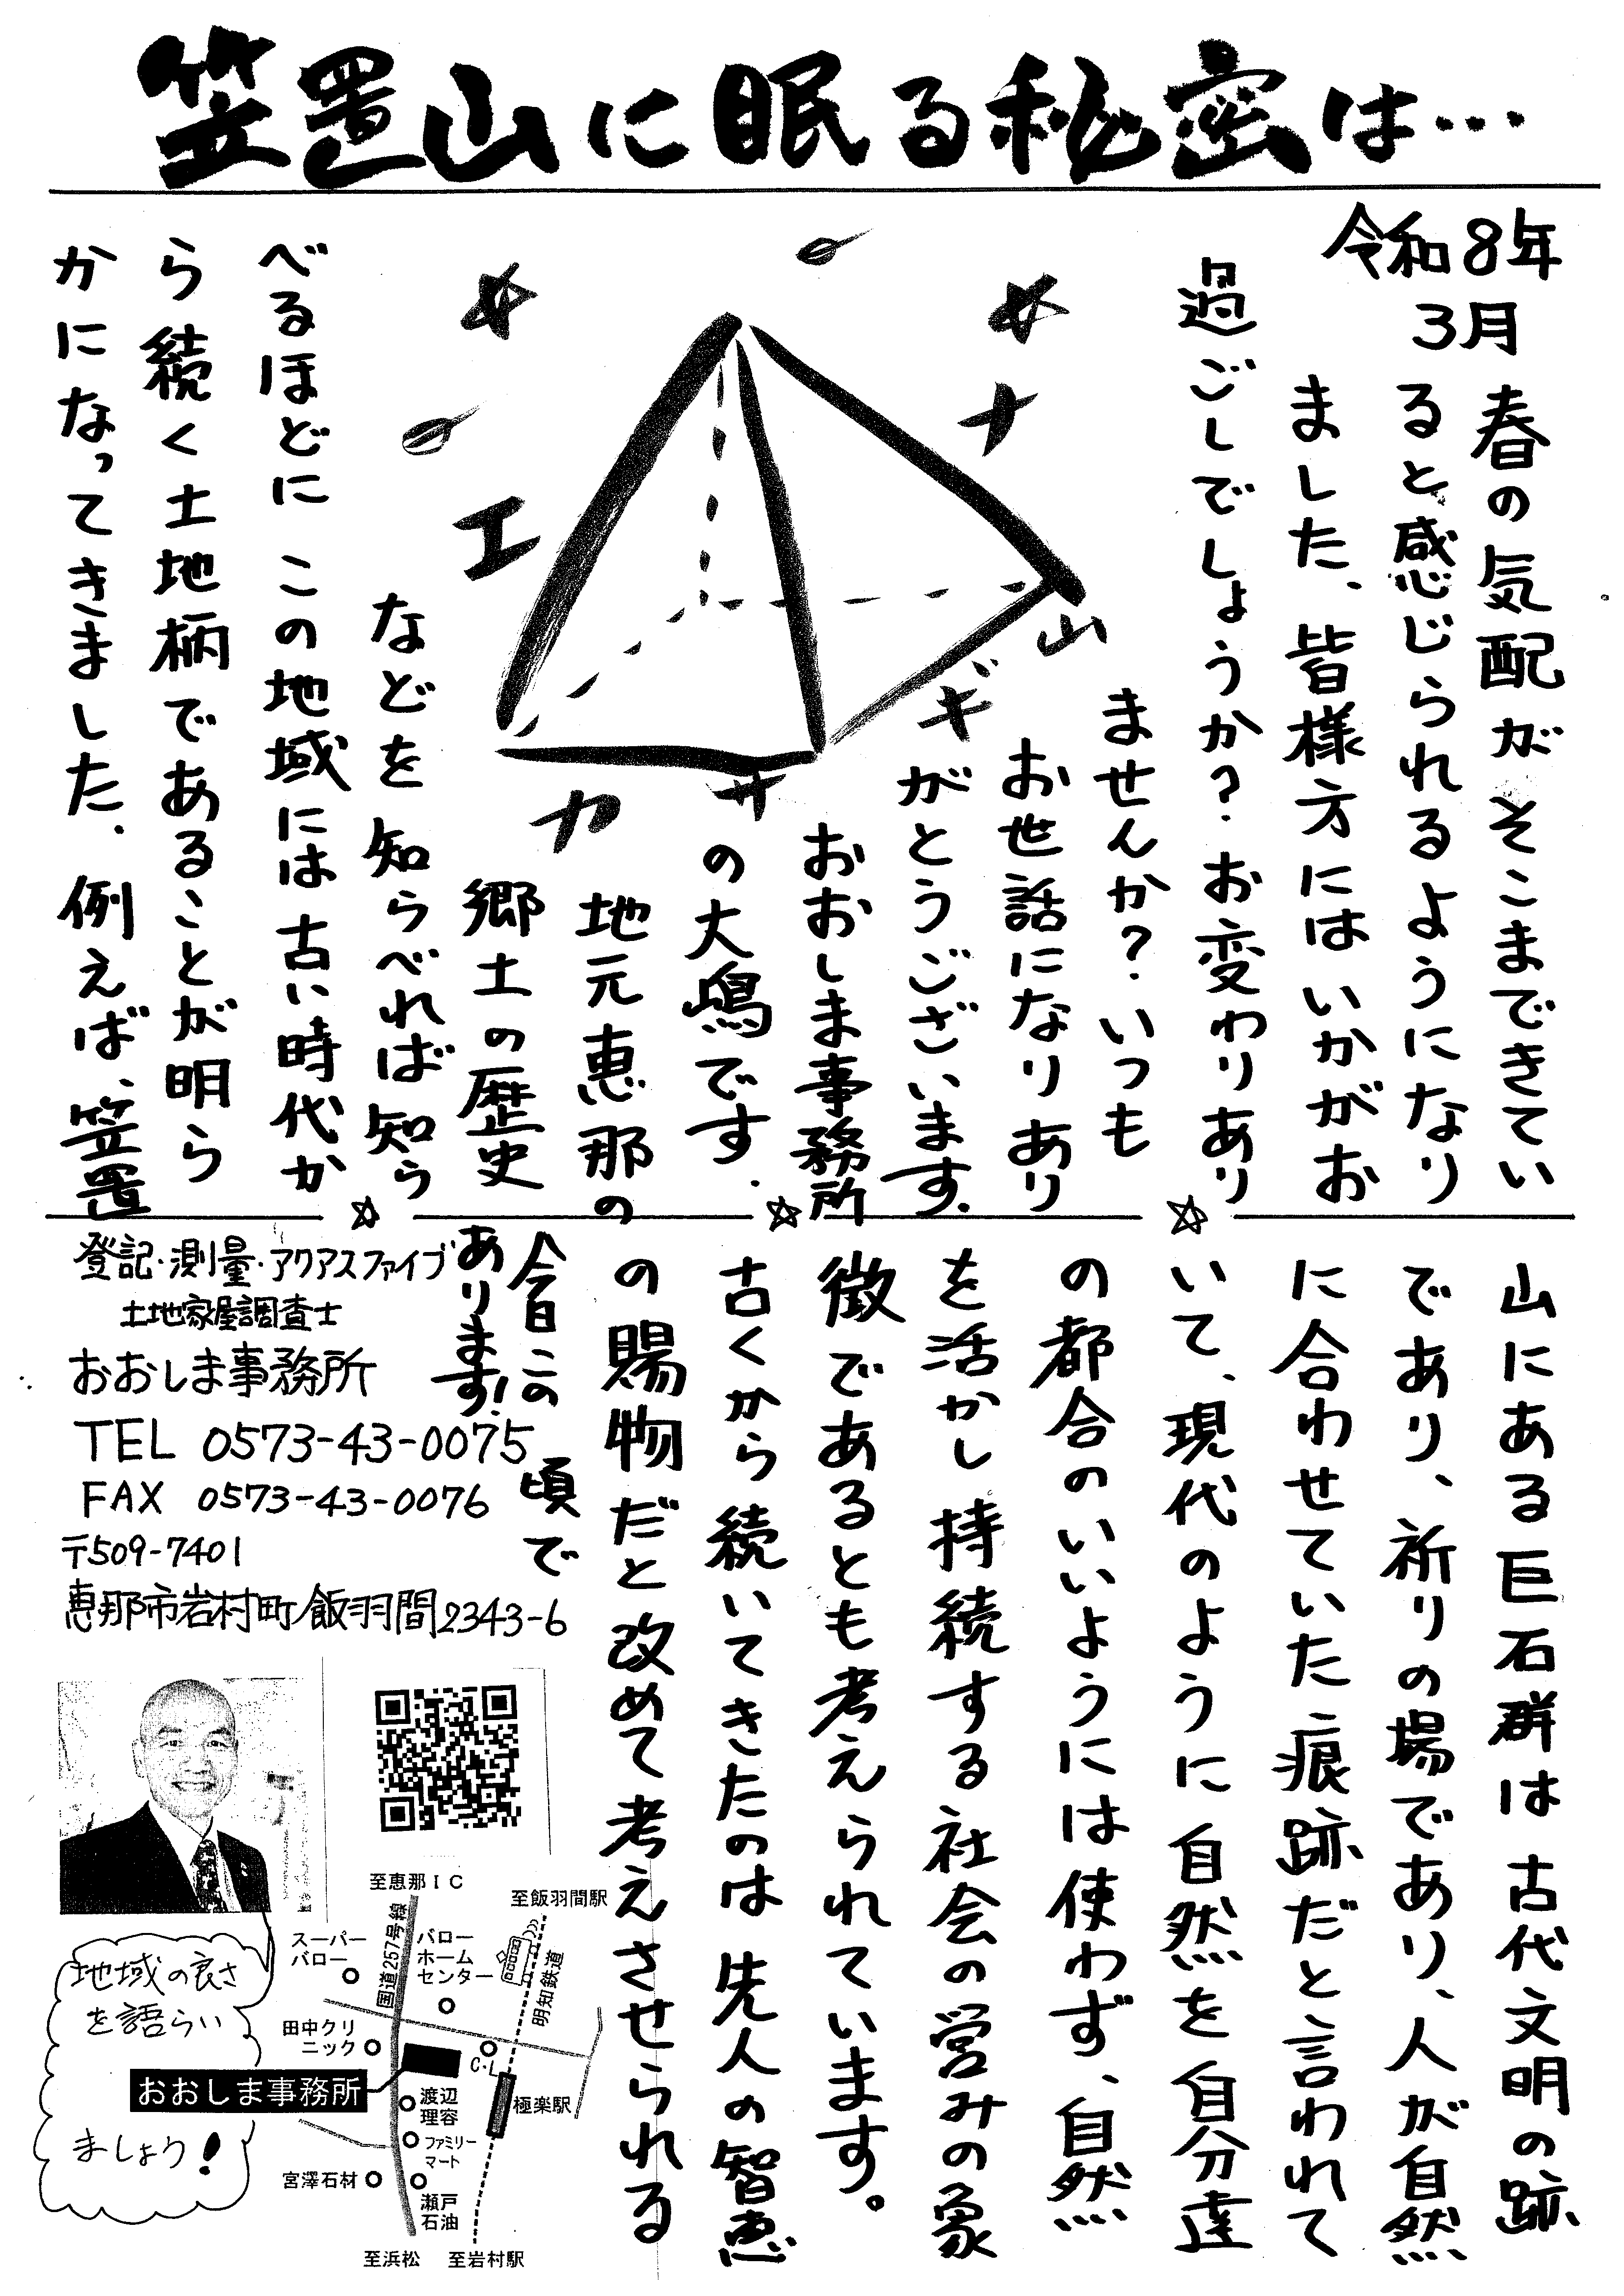 笠置山に眠る秘密は…
令和8年
3月
春の気配がそこまできてい
ると感じられるようになり
ました、皆様方にはいかがお
過ごしでしょうか？お変わりあり
ませんか？いつも
お世話になりあり
がとうございます。
おおしま事務所
の大嶋です.
地元恵那の
郷土の歴史
などを知らべれば知ら
べるほどにこの地域には古い時代か
ら続く土地柄であることが明ら
かになってきました、例えば、笠置
カサギ山
エナ
山にある巨石群は古代文明の跡
であり、祈りの場であり、人が自然
に合わせていた痕跡だと言われて
いて、現代のように自然を自分達
の都合のいいようには使わず、自然
を活かし持続する社会の営みの象
徴であるとも考えられています。
古くから続いてきたのは先人の智恵
の賜物だと改めて考えさせられる
今日この頃で
あります!
登記・測量・アクアスファイブ
土地家屋調査士
おおしま事務所
TEL 0573-43-0075
FAX 0573-43-0076
〒509-7401
恵那市岩村町飯羽間2343-6
地域の良さ
を語らい
ましょう!
至恵那IC
至飯羽間駅
国道257号線
スーパー
バロー
バロー
ホーム
センター
明知鉄道
田中クリ
ニック
C・L
おおしま事務所
渡辺
理容
極楽駅
ファミリー
マート
宮澤石材
瀬戸
石油
至浜松
至岩村駅